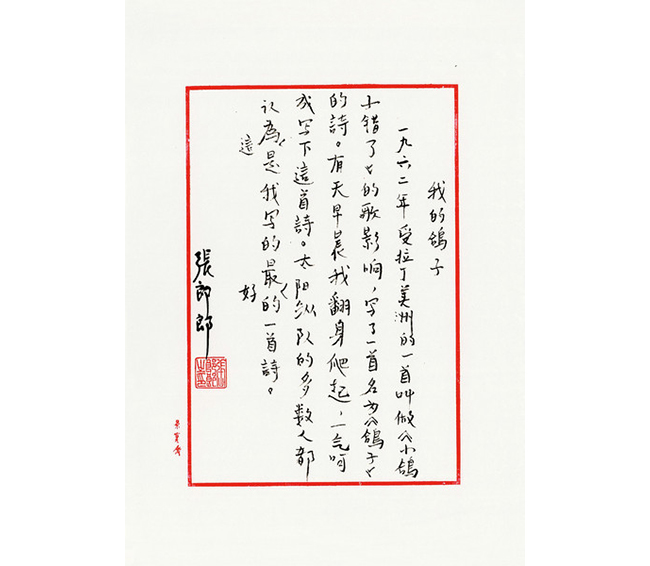 我的鴿子
一九六二年受拉丁美洲的一首叫做《小鴿
子错了》的歌影响，写了一首名为《鴿子》
的詩。有天早晨我翻身爬起，一气呵
成写下這首詩。太阳纵队的多数人都
认為這是我写的最好的一首詩。
張郎郎
榮寶齋